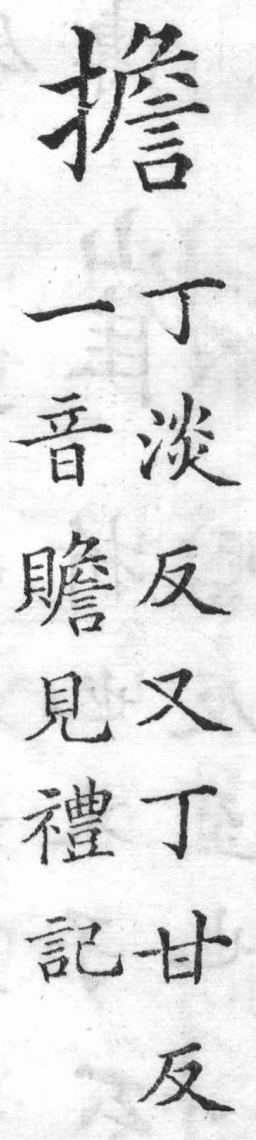 擔
丁淡反又丁甘反
一音贍見禮記